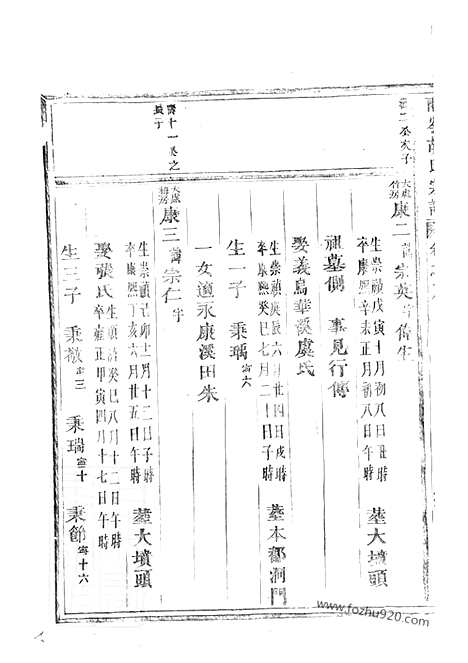 大成竹房 康二諱宗英字偉生
生崇禎戊寅十月初八日丑時
卒康熙辛未正月初八日午時 塟大墳頭
祖墓側 事見行傳
娶義烏華溪虞氏
生崇禎庚辰六月廿四日戌時
卒康熙癸巳七月二十日子時 塟本鄉洞門
生一子 秉瑀 富六
一女適永康溪田朱
康三諱宗仁字
生崇禎己卯十二月十二日子時
卒康熙丁亥六月廿五日午時 塟大墳頭
娶張氏
生順治癸巳八月十二日午時
卒雍正甲寅四月十七日午時
生三子 秉 三 秉瑞 富十 秉節 富十六
www.fozhu920.com